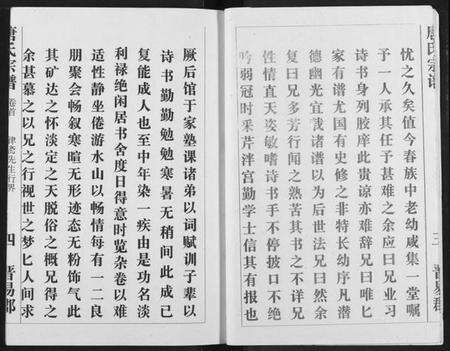 唐氏宗谱
三
晋易郡
忧之久矣值今春族中老幼咸集一堂嘱
予一人承其任予甚难之余应曰兄业习
诗书身列胶庠此贵谅亦难辞兄曰唯匕
家有谱尤国有史修之非特长幼序凡潜
德幽光宜哉诸谱以为后世法兄曰然余
复曰兄多芳行闻之熟苦其书之不详兄
性情直天姿敏嗜诗书手不停披口不绝
吟弱冠时采芹泮宫勤学士信其有报也
厥后馆于家塾课诸弟以词赋训子辈以
诗书勤勤勉勉寒暑无稍间此成己
复能成人也至中年染一疾由是功名淡
利禄绝闲居书舍度日得意时览杂卷以难
适性静坐倦游水山以畅情每有一二良
朋聚会畅叙寒暄无形迹态无粉饰气此
其矿达之怀淡定之天脱俗之概兄得之
余甚慕之以兄之行视世之梦匕人间求
唐氏宗谱
卷首
先生行
四
晋易郡